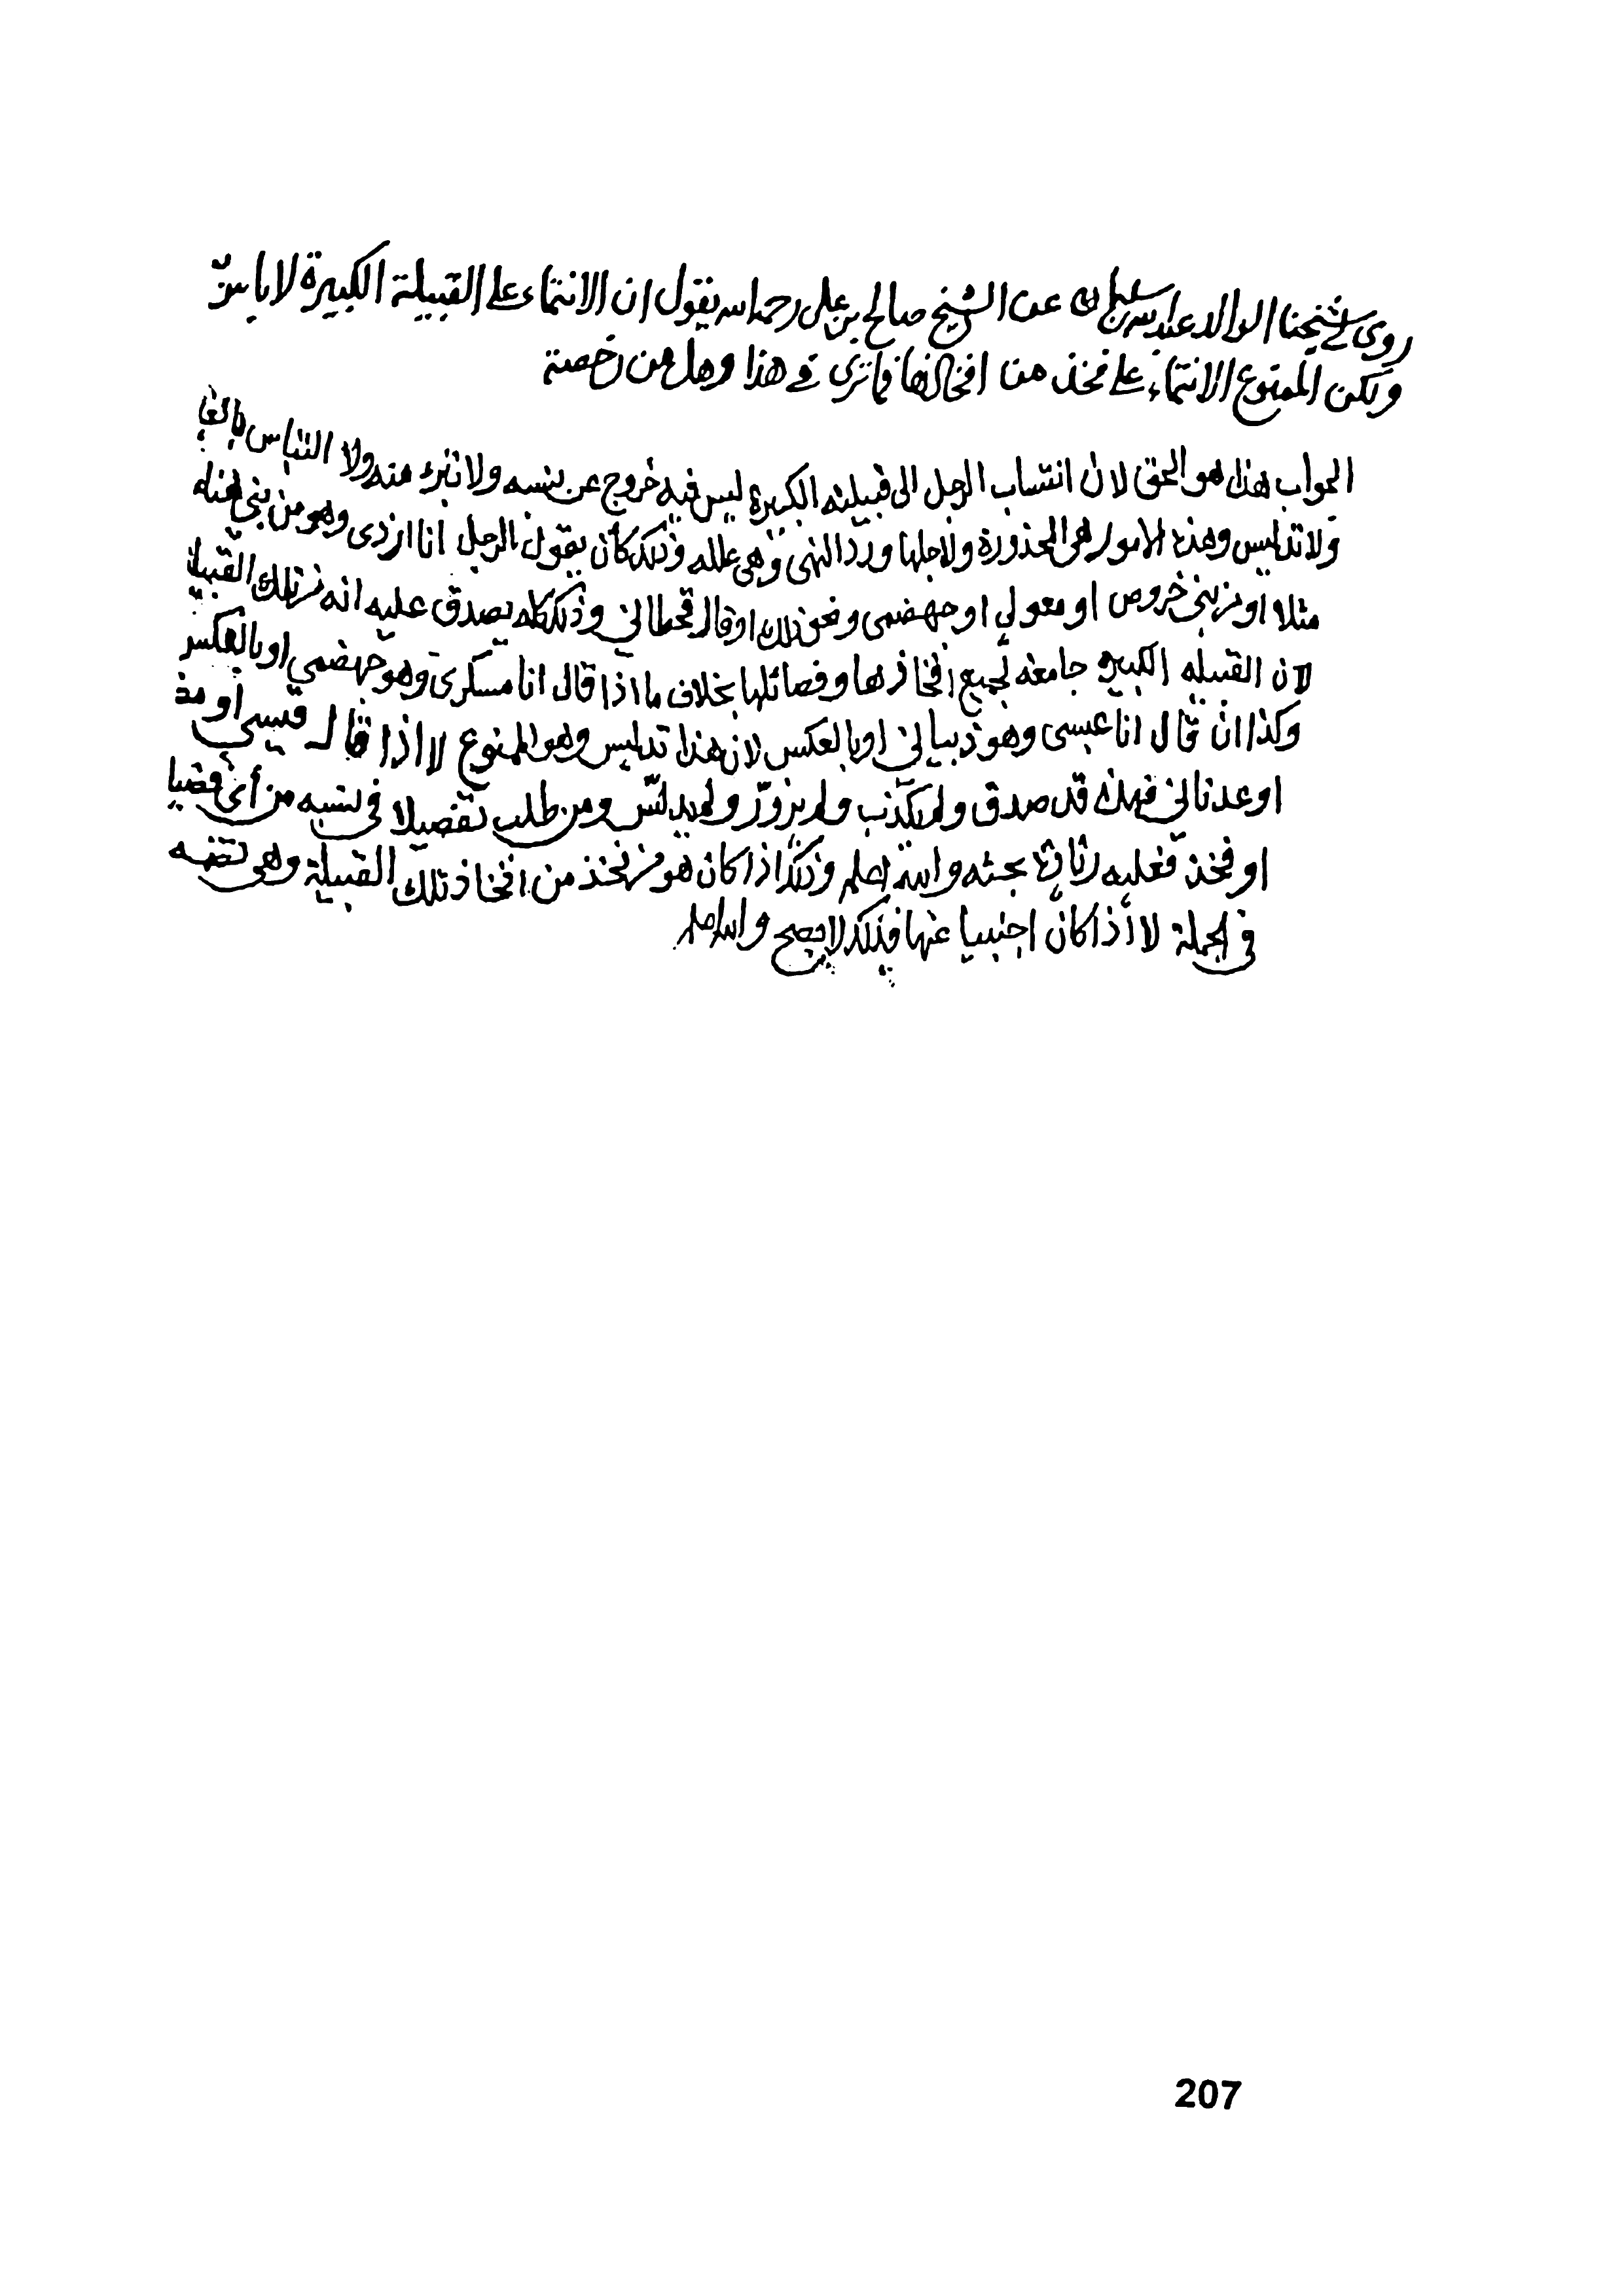 روى لي شيخنا الوالد عبدالله عن الشيخ صالح بن علي رحمه الله يقول ان الانتماء على القبيلة الكبيرة لا باس
ولكن الممنوع الانتماء على فخذ من افخاذها فما ترى في هذا وهل من رخصة
الجواب هذا هو الحق لان انتساب الرجل الى قبيلته الكبيرة ليس فيه خروج عن نسبه ولا تبرء منه ولا التباس بالغير
ولا تدليس وهذه الامور هي المحذورة ولاجلها ورد النهى وهي علله وذلك كأن يقول الرجل انا ازدى وهو من بني هناه
مثلا او من بني خروص او معولي او جهضمى ونحو ذلك او قال قحطاني وذلك كله يصدق عليه انه من تلك القبيلة
لان القبيله الكبيره جامعة لجميع افخاذها وفصائلها بخلاف ما اذا قال انا مسكرى وهو جهضمي او بالعكس
وكذا ان قال انا عبسى وهو ذبياني او بالعكس لان هذا تدليس وهو الممنوع لا اذا قال قيسي او
او عدناني فهذا قد صدق ولم يكذب ولم يزوّر ولم يدلّس ومن طلب تفصيلا في نسبه من أي
او فخذ فعليه بحثه والله اعلم وذلك اذا كان هو من فخذ من افخاذ تلك القبيلة وهي
في الجملة لا أذا كان اجنبيا عنها فذلك لا يصح والله اعلم
207